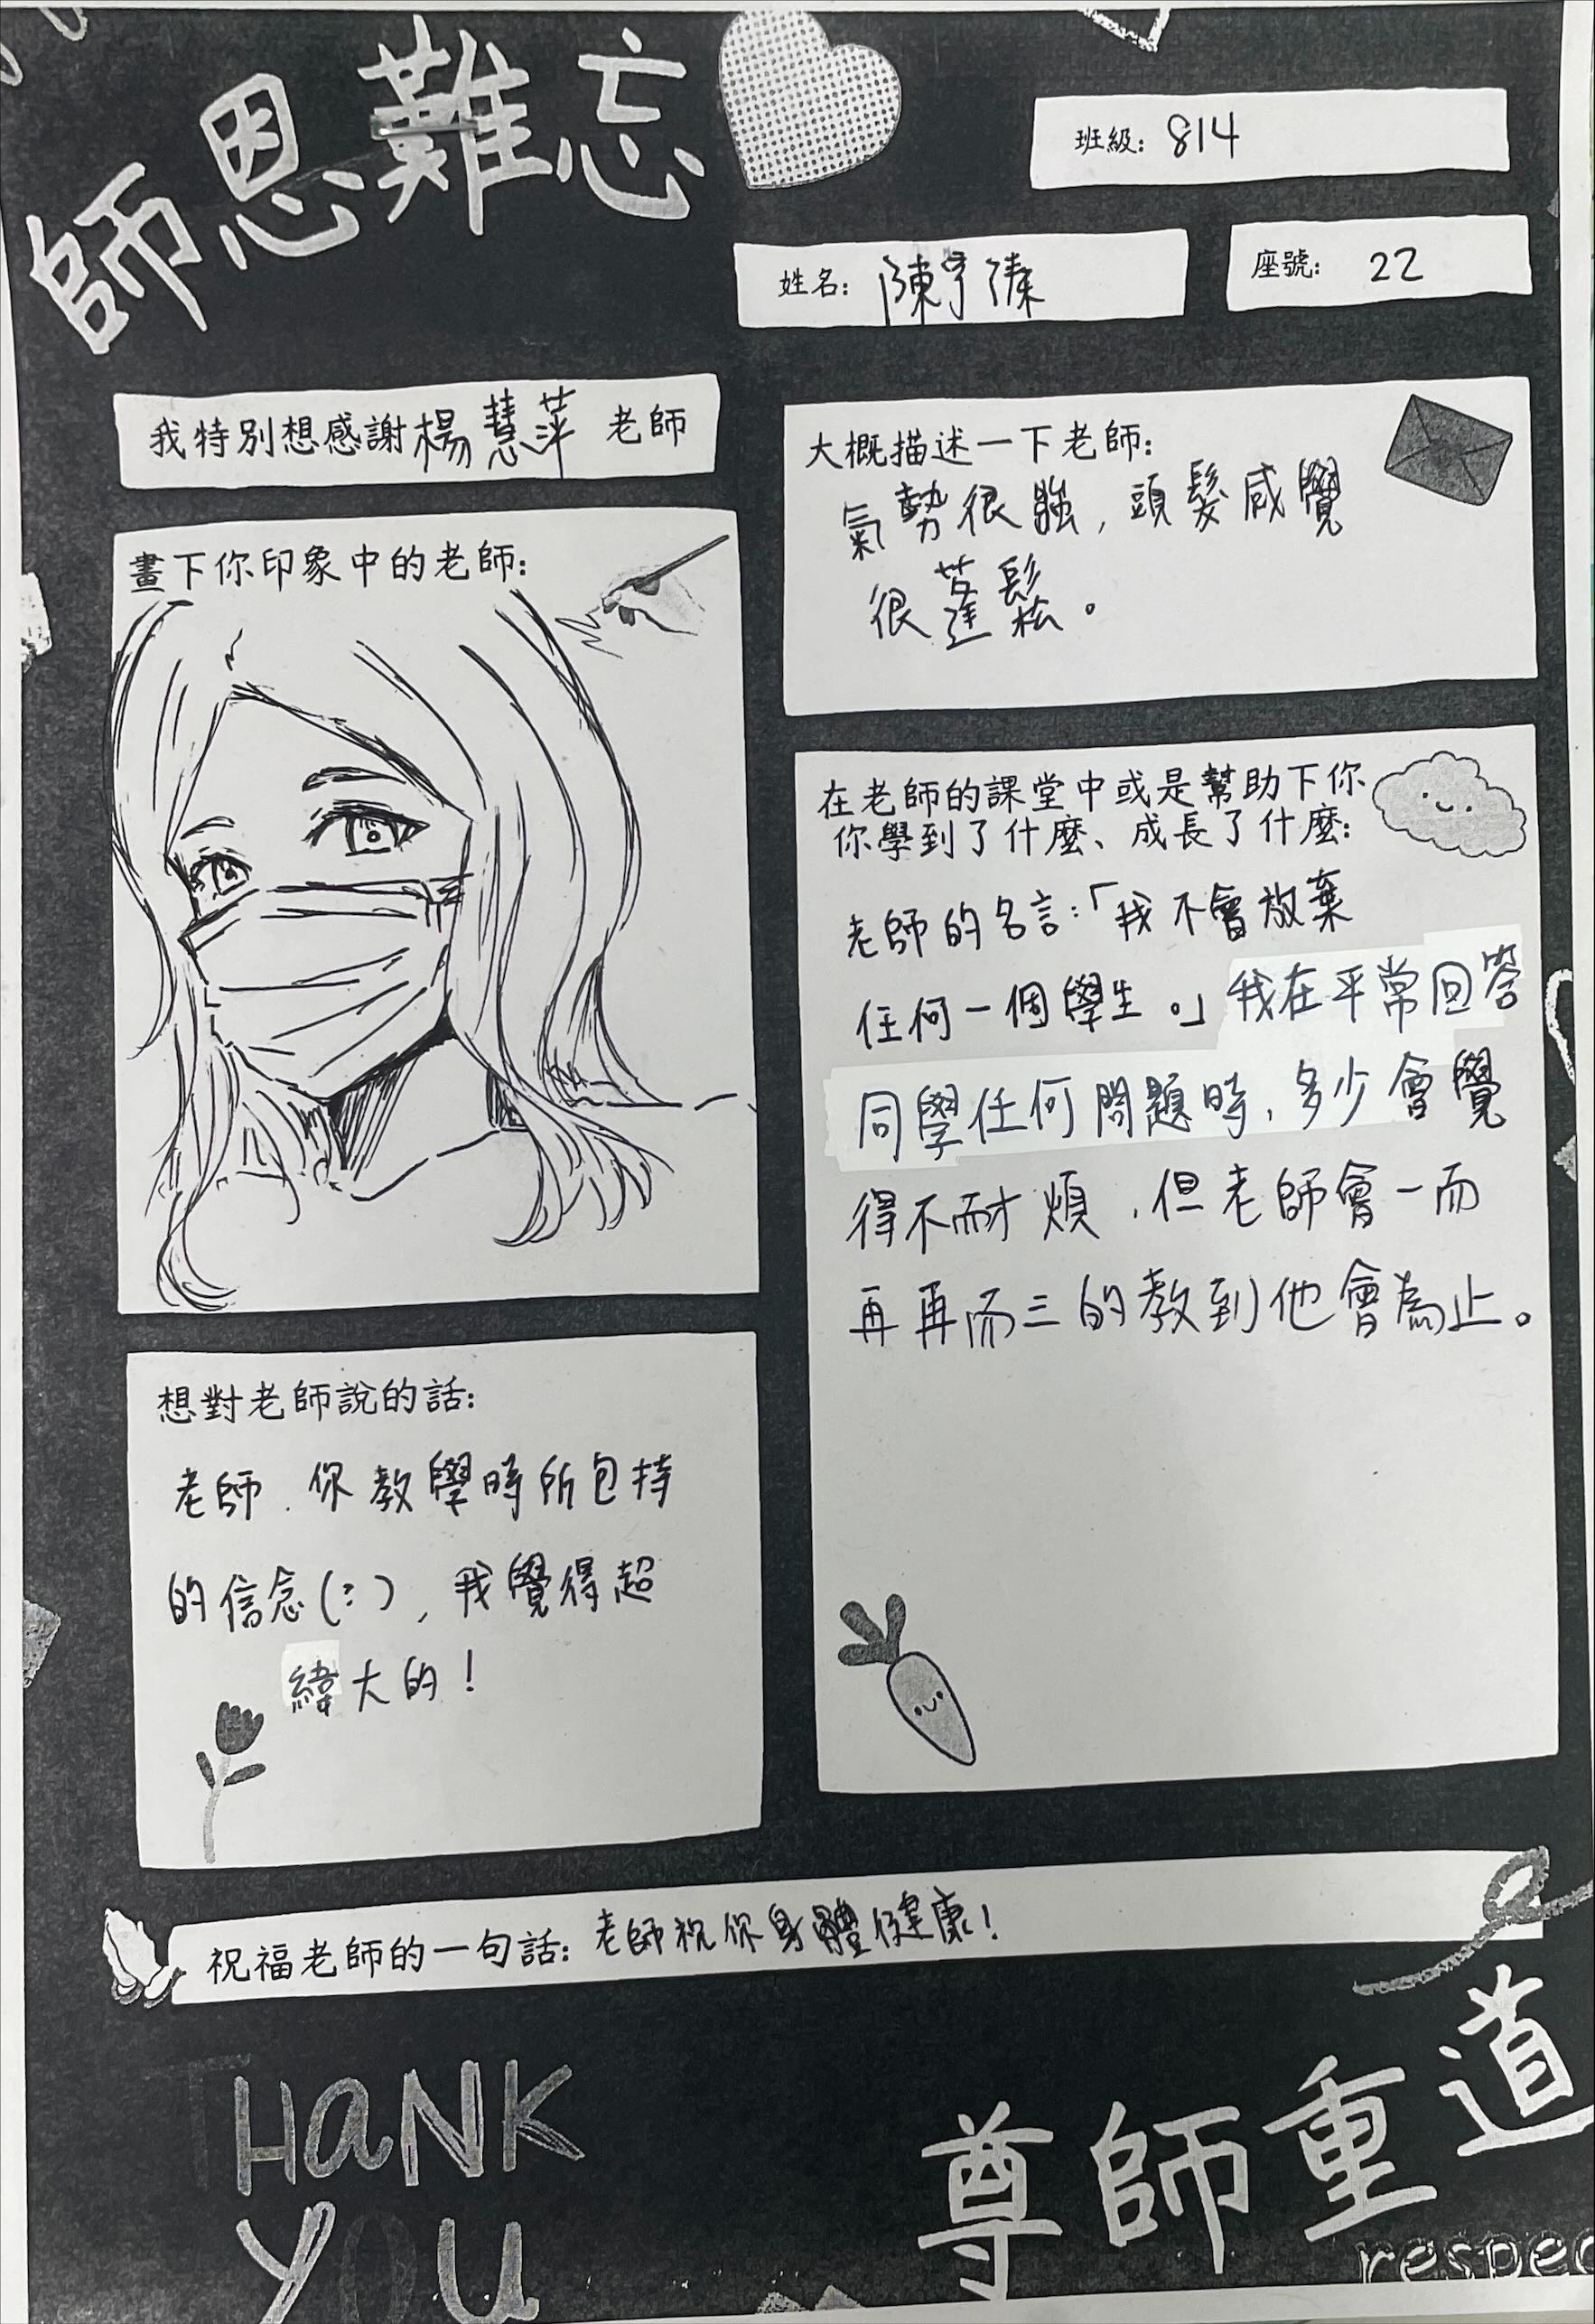 師恩難忘
班級: 814
姓名: 陳宇溱
座號: 22
我特別想感謝楊慧萍 老師
大概描述一下老師:
氣勢很強,頭髮感覺
很蓬鬆。
畫下你印象中的老師:
在老師的課堂中或是幫助下你
你學到了什麼、成長了什麼:
老師的名言:「我不會放棄
任何一個學生。」我在平常回答
同學任何問題時,多少會覺
得不耐煩,但老師會一而
再再而三的教到他會為止。
想對老師說的話:
老師,你教學時所包持
的信念(:),我覺得超
緯大的!
祝福老師的一句話: 老師祝你身體健康!
THaNK
YOU
尊師重道
respec